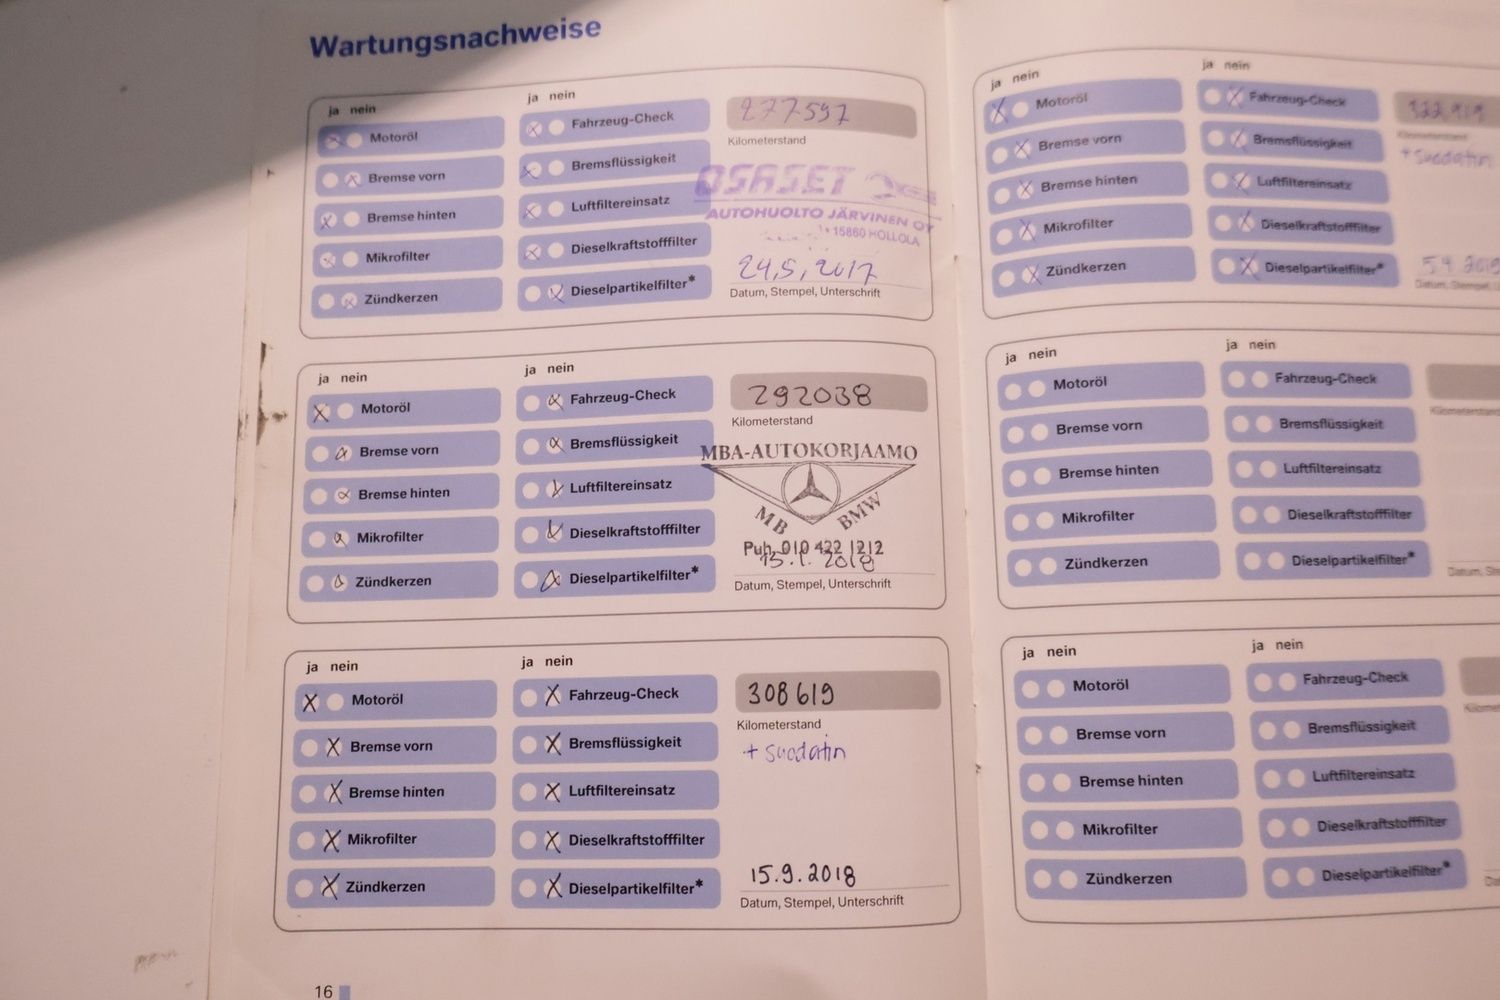 Wartungsnachweise
ja nein
Motoröl
Bremse vorn
Bremse hinten
Mikrofilter
Zündkerzen
ja nein
Fahrzeug-Check
Bremsflüssigkeit
Luftfiltereinsatz
Dieselkraftstofffilter
Dieselpartikelfilter*
277597
Kilometerstand
OSASET
AUTOHUOLTO JÄRVINEN OY
15860 HOLLOLA
24,5,2017
Datum, Stempel, Unterschrift
ja nein
Motoröl
Bremse vorn
Bremse hinten
Mikrofilter
Zündkerzen
ja nein
Fahrzeug-Check
Bremsflüssigkeit
Luftfiltereinsatz
Dieselkraftstofffilter
Dieselpartikelfilter*
292038
Kilometerstand
MBA-AUTOKORJAAMO
MB BMW
Puh. 010 422 1212
15.1. 2018
Datum, Stempel, Unterschrift
ja nein
Motoröl
Bremse vorn
Bremse hinten
Mikrofilter
Zündkerzen
ja nein
Fahrzeug-Check
Bremsflüssigkeit
Luftfiltereinsatz
Dieselkraftstofffilter
Dieselpartikelfilter*
308619
Kilometerstand
+ suodatin
15.9.2018
Datum, Stempel, Unterschrift
16
ja nein
Motoröl
Bremse vorn
Bremse hinten
Mikrofilter
Zündkerzen
ja nein
Fahrzeug-Check
Bremsflüssigkeit
Luftfiltereinsatz
Dieselkraftstofffilter
Dieselpartikelfilter*
322919
Kilometerstand
+ suodatin
5.9.2019
Datum, Stempel,
ja nein
Motoröl
Bremse vorn
Bremse hinten
Mikrofilter
Zündkerzen
ja nein
Fahrzeug-Check
Bremsflüssigkeit
Luftfiltereinsatz
Dieselkraftstofffilter
Dieselpartikelfilter*
Kilometerstand
Datum,
ja nein
Motoröl
Bremse vorn
Bremse hinten
Mikrofilter
Zündkerzen
ja nein
Fahrzeug-Check
Bremsflüssigkeit
Luftfiltereinsatz
Dieselkraftstofffilter
Dieselpartikelfilter*